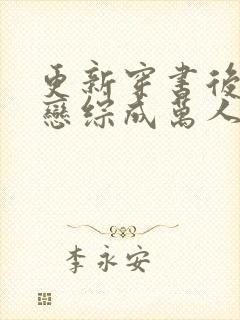 更新穿書後
戀綜成萬人
李永安